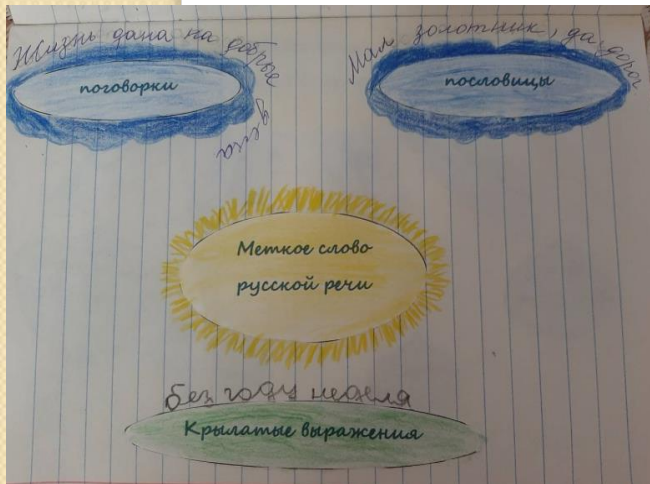 Жизнь дана на добрые
дела
поговорки
Мал золотник, да дорог
пословицы
Меткое слово
русской речи
без году неделя
Крылатые выражения